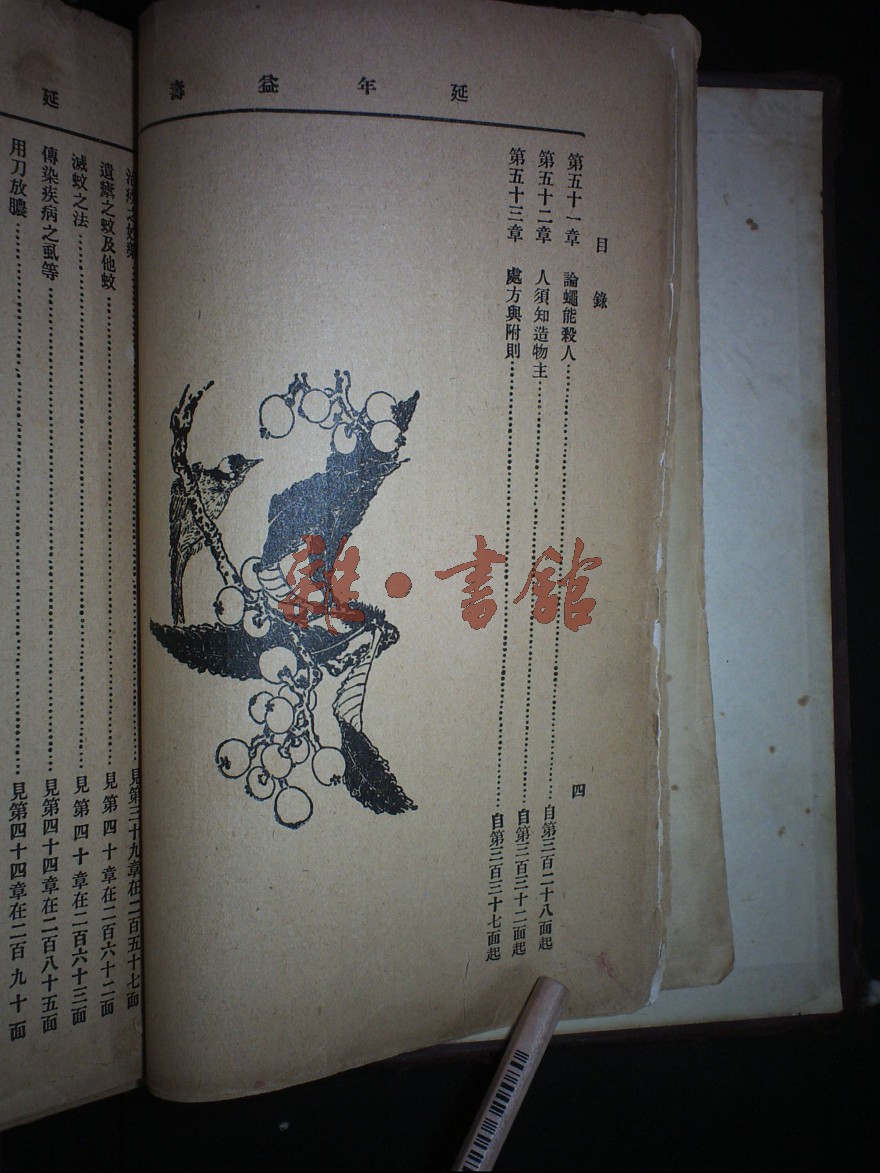 延年益壽
目錄 四
第五十一章 論蠅能殺人……自第三百二十八面起
第五十二章 人須知造物主……自第三百三十二面起
第五十三章 處方與附則……自第三百三十七面起
雜·書館
延
治瘧之妙藥……見第三十九章在二百五十七面
遺瘧之蚊及他蚊……見第四十章在二百六十二面
滅蚊之法……見第四十章在二百六十三面
傳染疾病之虱等……見第四十四章在二百八十五面
用刀放膿……見第四十四章在二百九十面